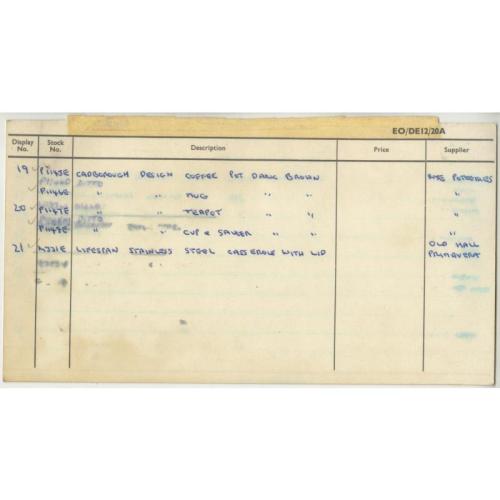 EO/DE12/20A
Display No. Stock No. Description Price Supplier
19 P1145E CADBOROUGH DESIGN COFFEE POT DARK BROWN RYE POTTERIES
P1146E " " MUG " " "
20 P1147E " " TEAPOT " " "
P1148E " " CUP & SAUCER " " "
21 LIFESPAN STAINLESS STEEL CASSEROLE WITH LID OLD HALL